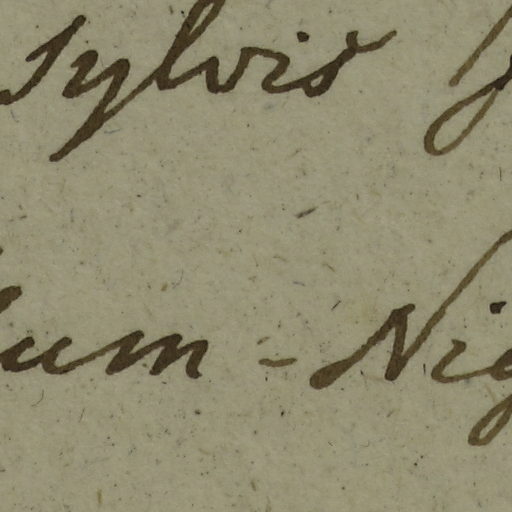 sylvis
lum - Nig